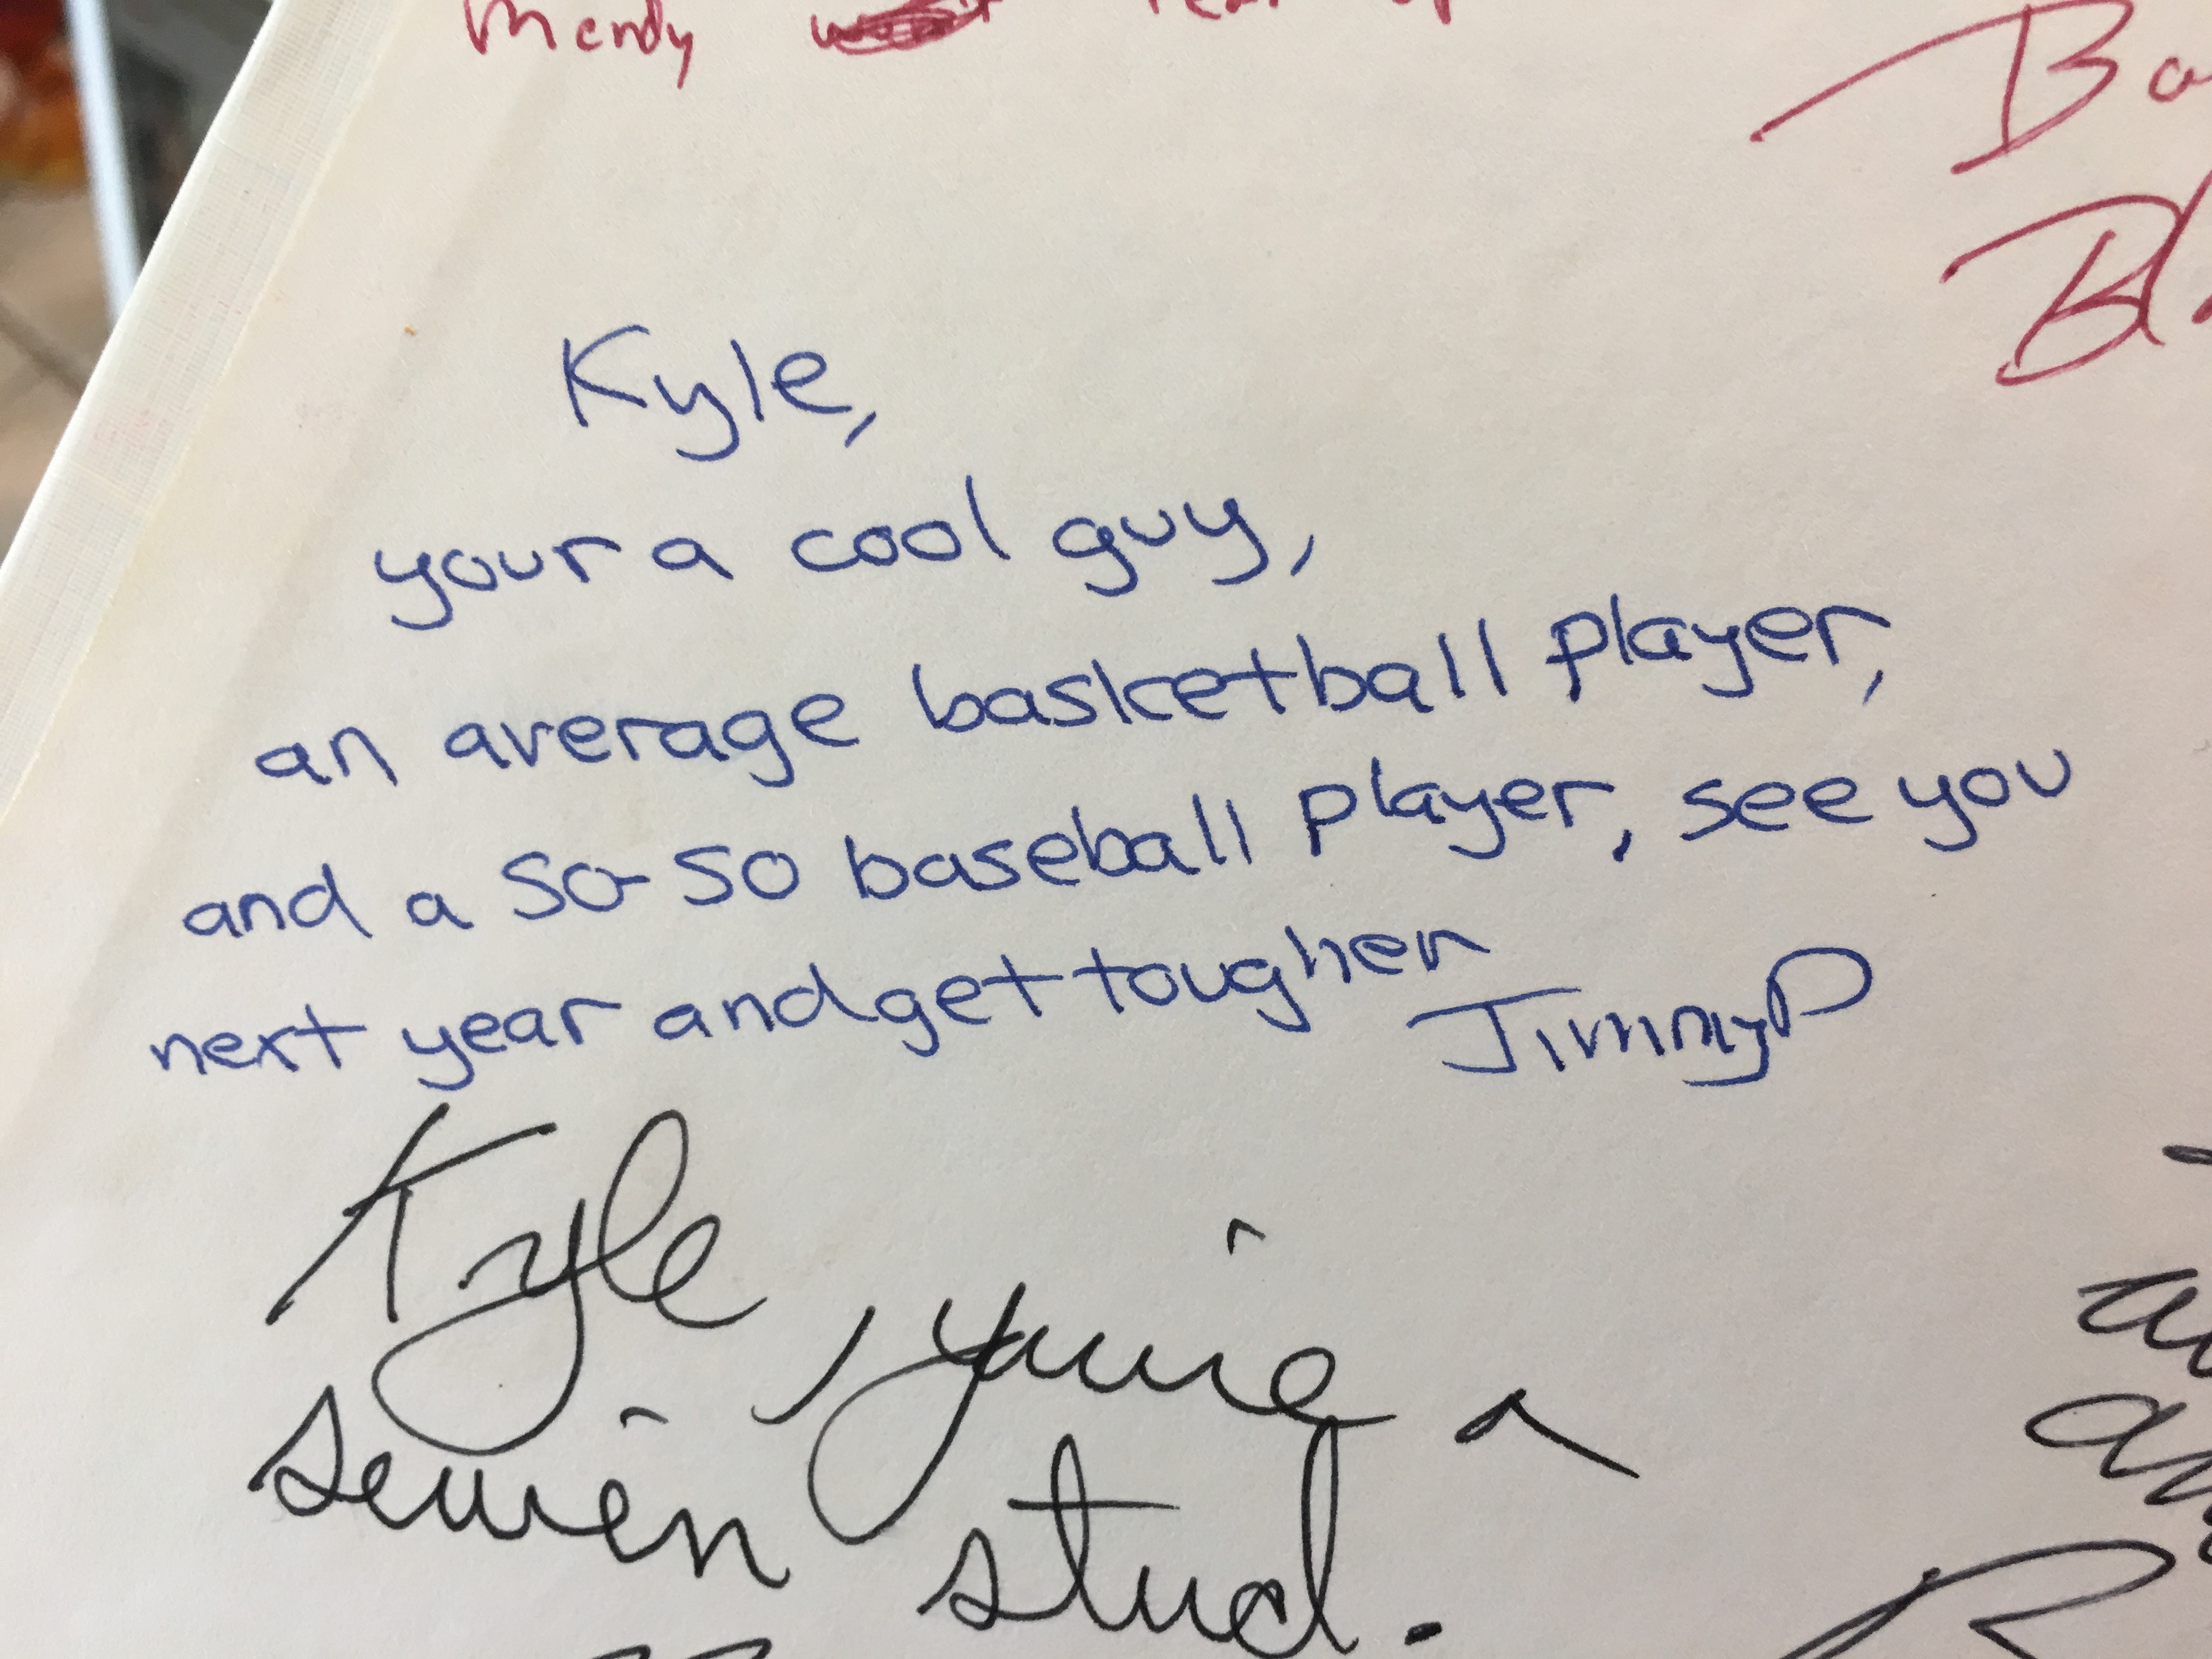 Mendy
Ba
Bl
Kyle,
your a cool guy,
an average basketball player,
and a so-so baseball player, see you
next year and get tougher
Jimmy P
Kyle, you're a
stud.